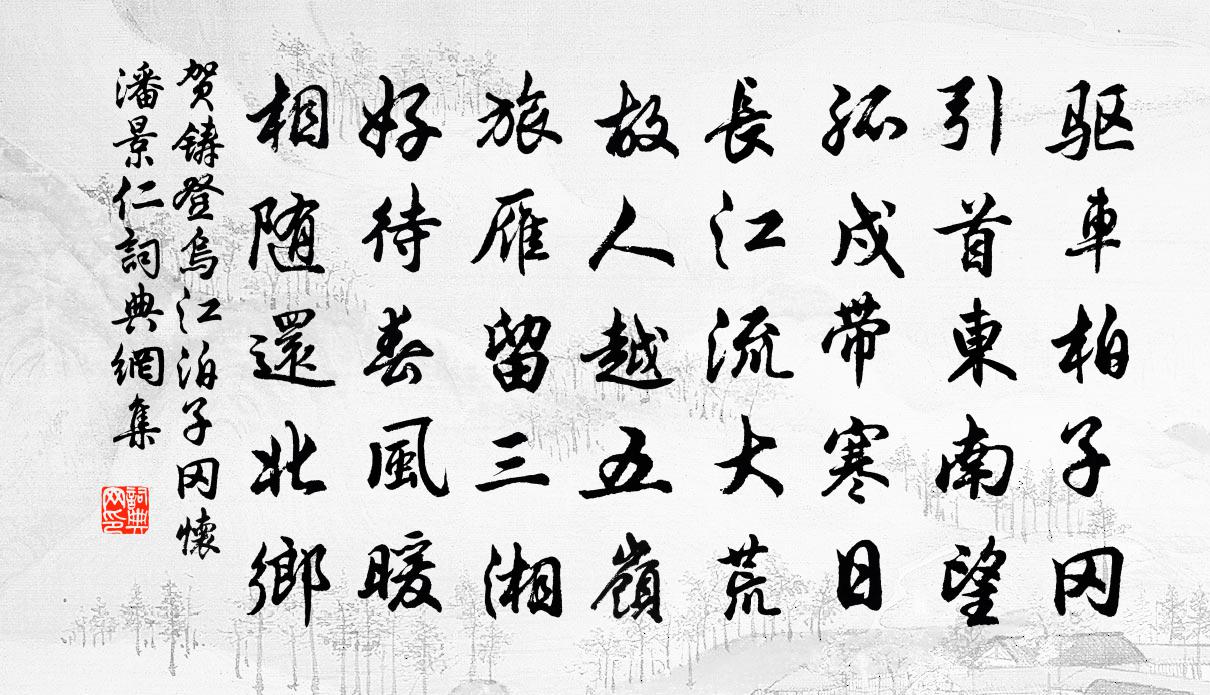 驱車柏子冈
引首東南望
孤戍帶寒日
長江流大荒
故人越五嶺
旅雁留三湘
好待春風暖
相随還北鄉
贺鑄登烏江泊子冈懷
潘景仁詞典網集
詞典
网印